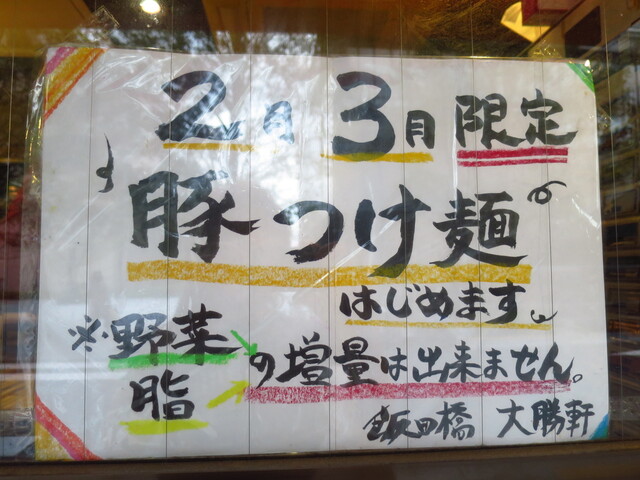 2月 3月 限定
豚つけ麺
はじめます。
※野菜
脂
の増量は出来ません。
飯田橋 大勝軒